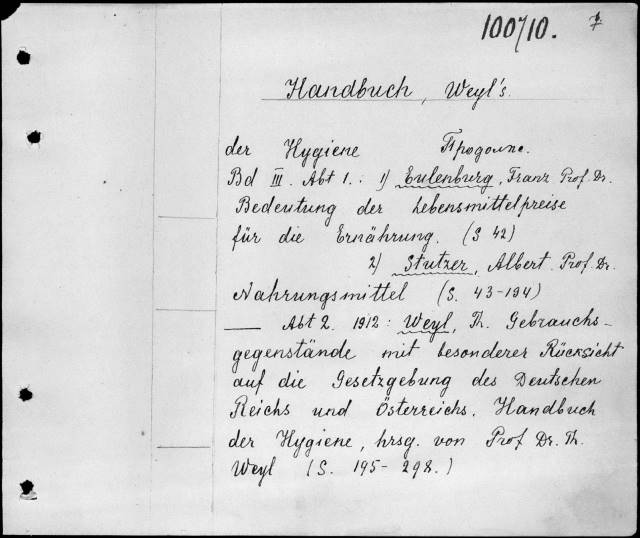 100710. 7
Handbuch, Weyl's.
der Hygiene Продолж.
Bd III. Abt 1.: 1) Eulenburg, Franz Prof. Dr.
Bedeutung der Lebensmittelpreise
für die Ernährung. (S 42)
2) Stutzer, Albert. Prof. Dr.
Nahrungsmittel (S. 43-194)
— Abt 2. 1912: Weyl, Th. Gebrauchs-
gegenstände mit besonderer Rücksicht
auf die Gesetzgebung des Deutschen
Reichs und Österreichs. Handbuch
der Hygiene, hrsg. von Prof Dr. Th.
Weyl (S. 195-298.)